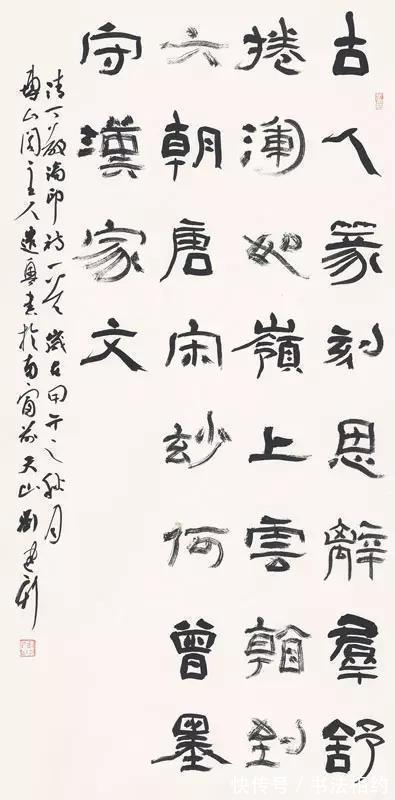 古人篆刻思離羣舒
捲渾如嶺上雲看到
六朝唐宋妙何曾墨
守漢家文
清丁敬論印詩一首歲在甲午之秋月
山閣主人書於南窗天山劉建新
快传号 / 书法相约